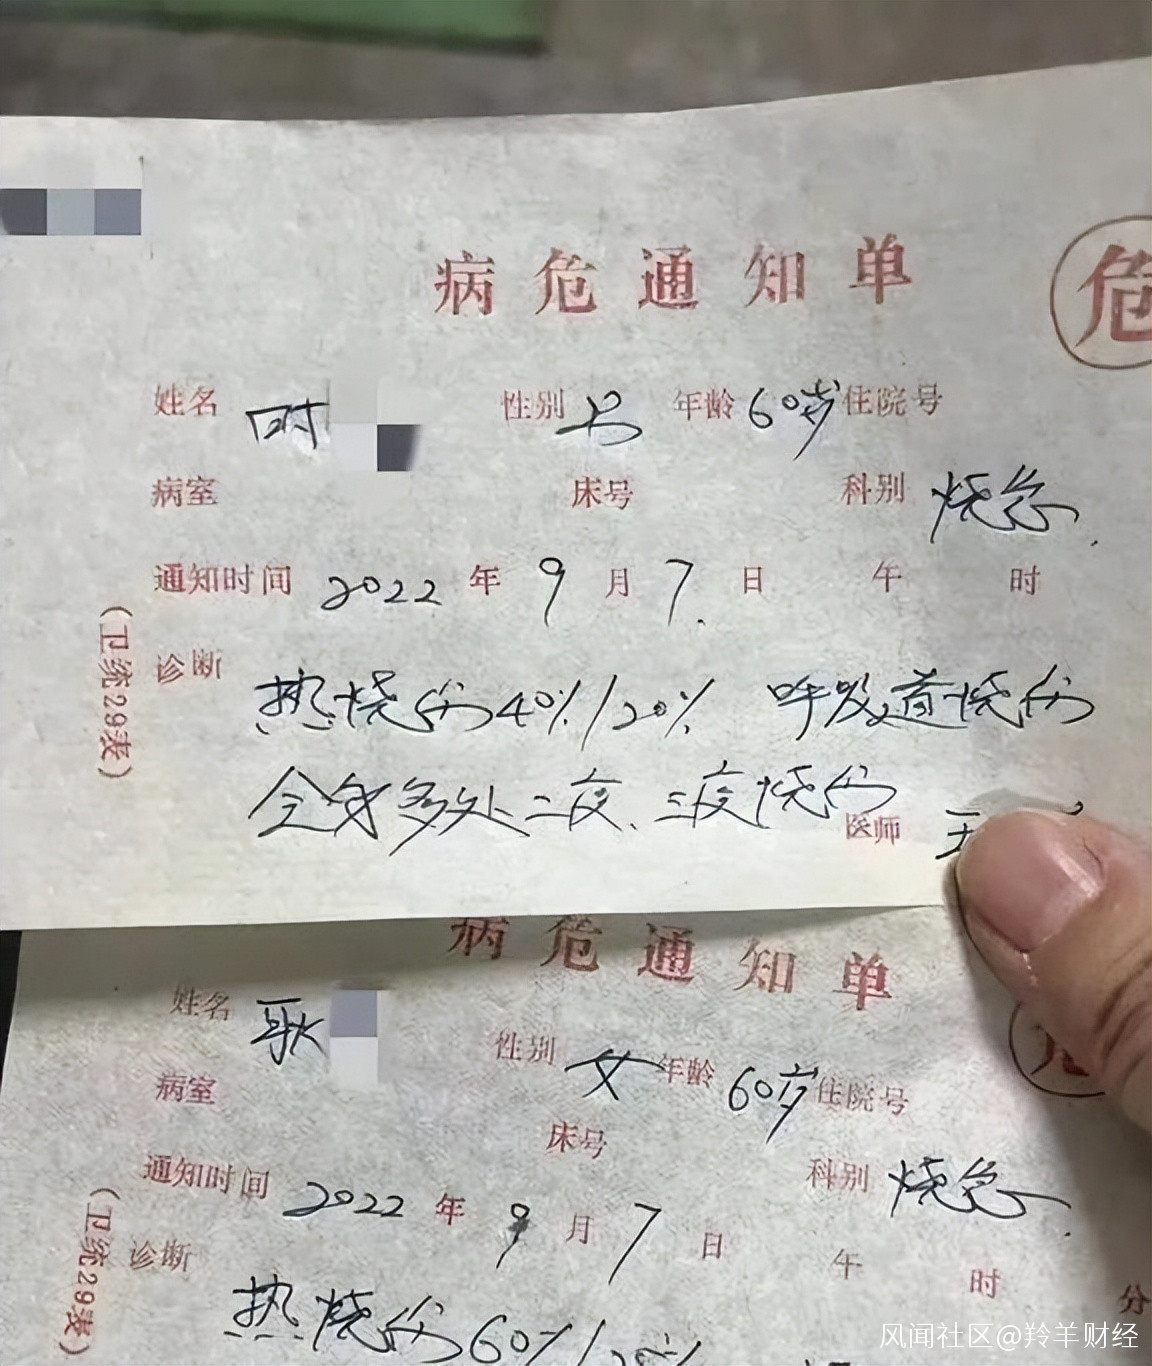 病危通知单 危
姓名 时 性别 女 年龄 60岁 住院号
病室 床号 科别 烧急
通知时间 2022 年 9 月 7 日 午 时
(卫统29表)
诊断
热烧伤40%/20% 呼吸道烧伤
全身多处二度、三度烧伤
医师 王
病危通知单
姓名 耿 性别 女 年龄 60岁 住院号
病室 床号 科别 烧急
通知时间 2022 年 9 月 7 日 午 时 分
(卫统29表)
诊断
热烧伤60%/20%
风闻社区@羚羊财经